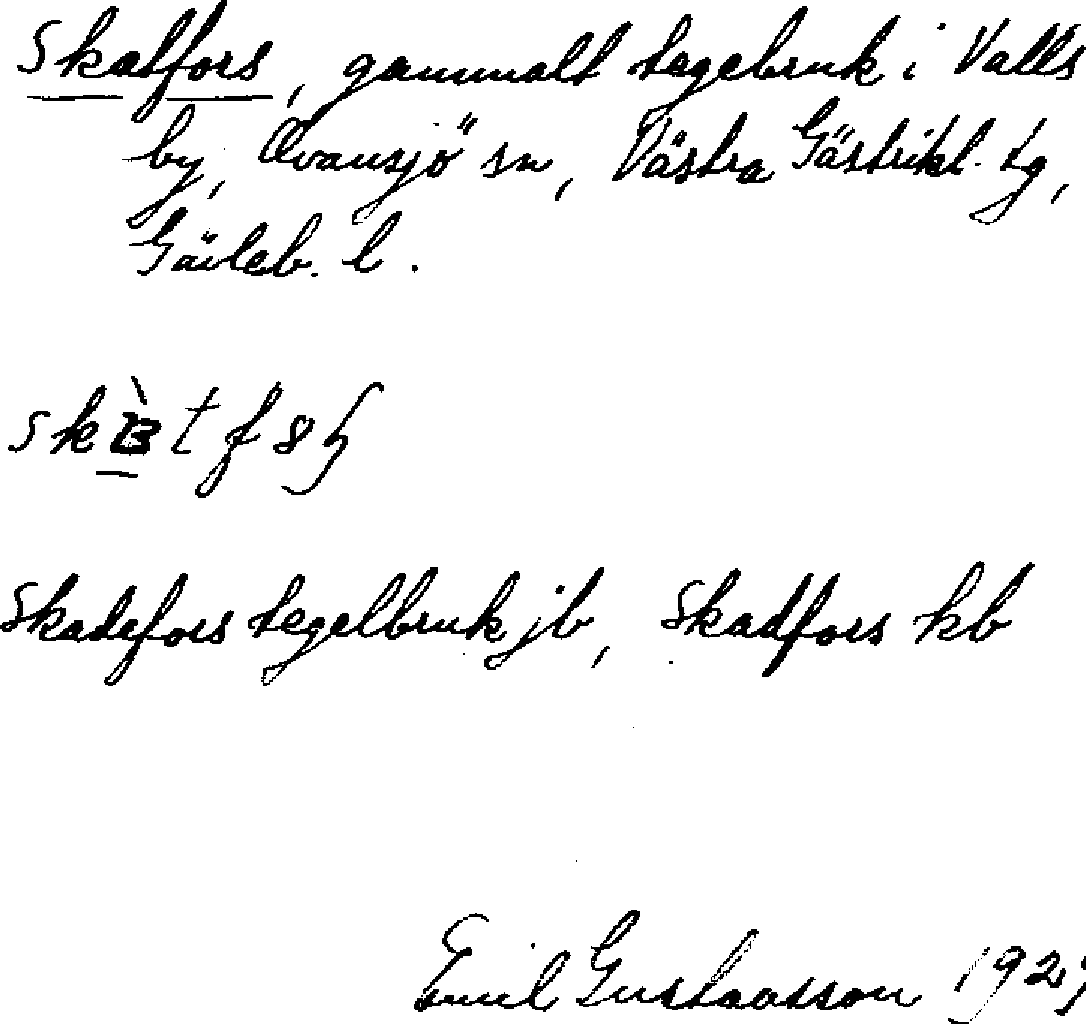 Skatfors, gammalt tegebruk i Valls
by, Ovansjö sn, Västra Gästrikl. tg,
Gävleb. l.
Skadefors tegelbruk jb, Skadfors kb
Emil Gustavsson